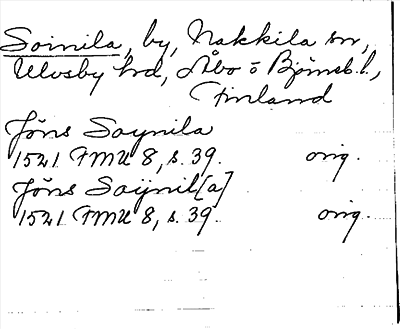 Soinila, by, Nakkila sn,
Ulvsby hd, Åbo o Björneb. l.,
Finland
Jöns Soynila
1521 FMU 8, s. 39. orig.
Jöns Soijnil[a]
1521 FMU 8, s. 39. orig.